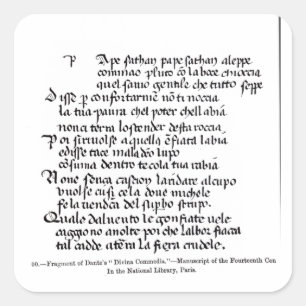 P Ape sathan pape sathan aleppe
cominao pluto co la boce chioccia
quel savio gentile che tutto seppe
Disse p confortarme nō ti noccia
la tua paura chel poter chell abia
non ci terra lo scender desta roccia
Poi si rivolse a quella ēfiata labia
e disse tace maladeo lupo
cōsuma dentro te cola tua rabia
None senca casion landare al cupo
vuolse cusi cola dove michele
fe la vendeca del supbo strupo
Quale dal vento le gonfiate vele
caggiono
poi che lalbor fiacca
tal cadde a terra la fiera crudele
00.—Fragment of Dante's "Divina Commedia."—Manuscript of the Fourteenth Cen
In the National Library, Paris.